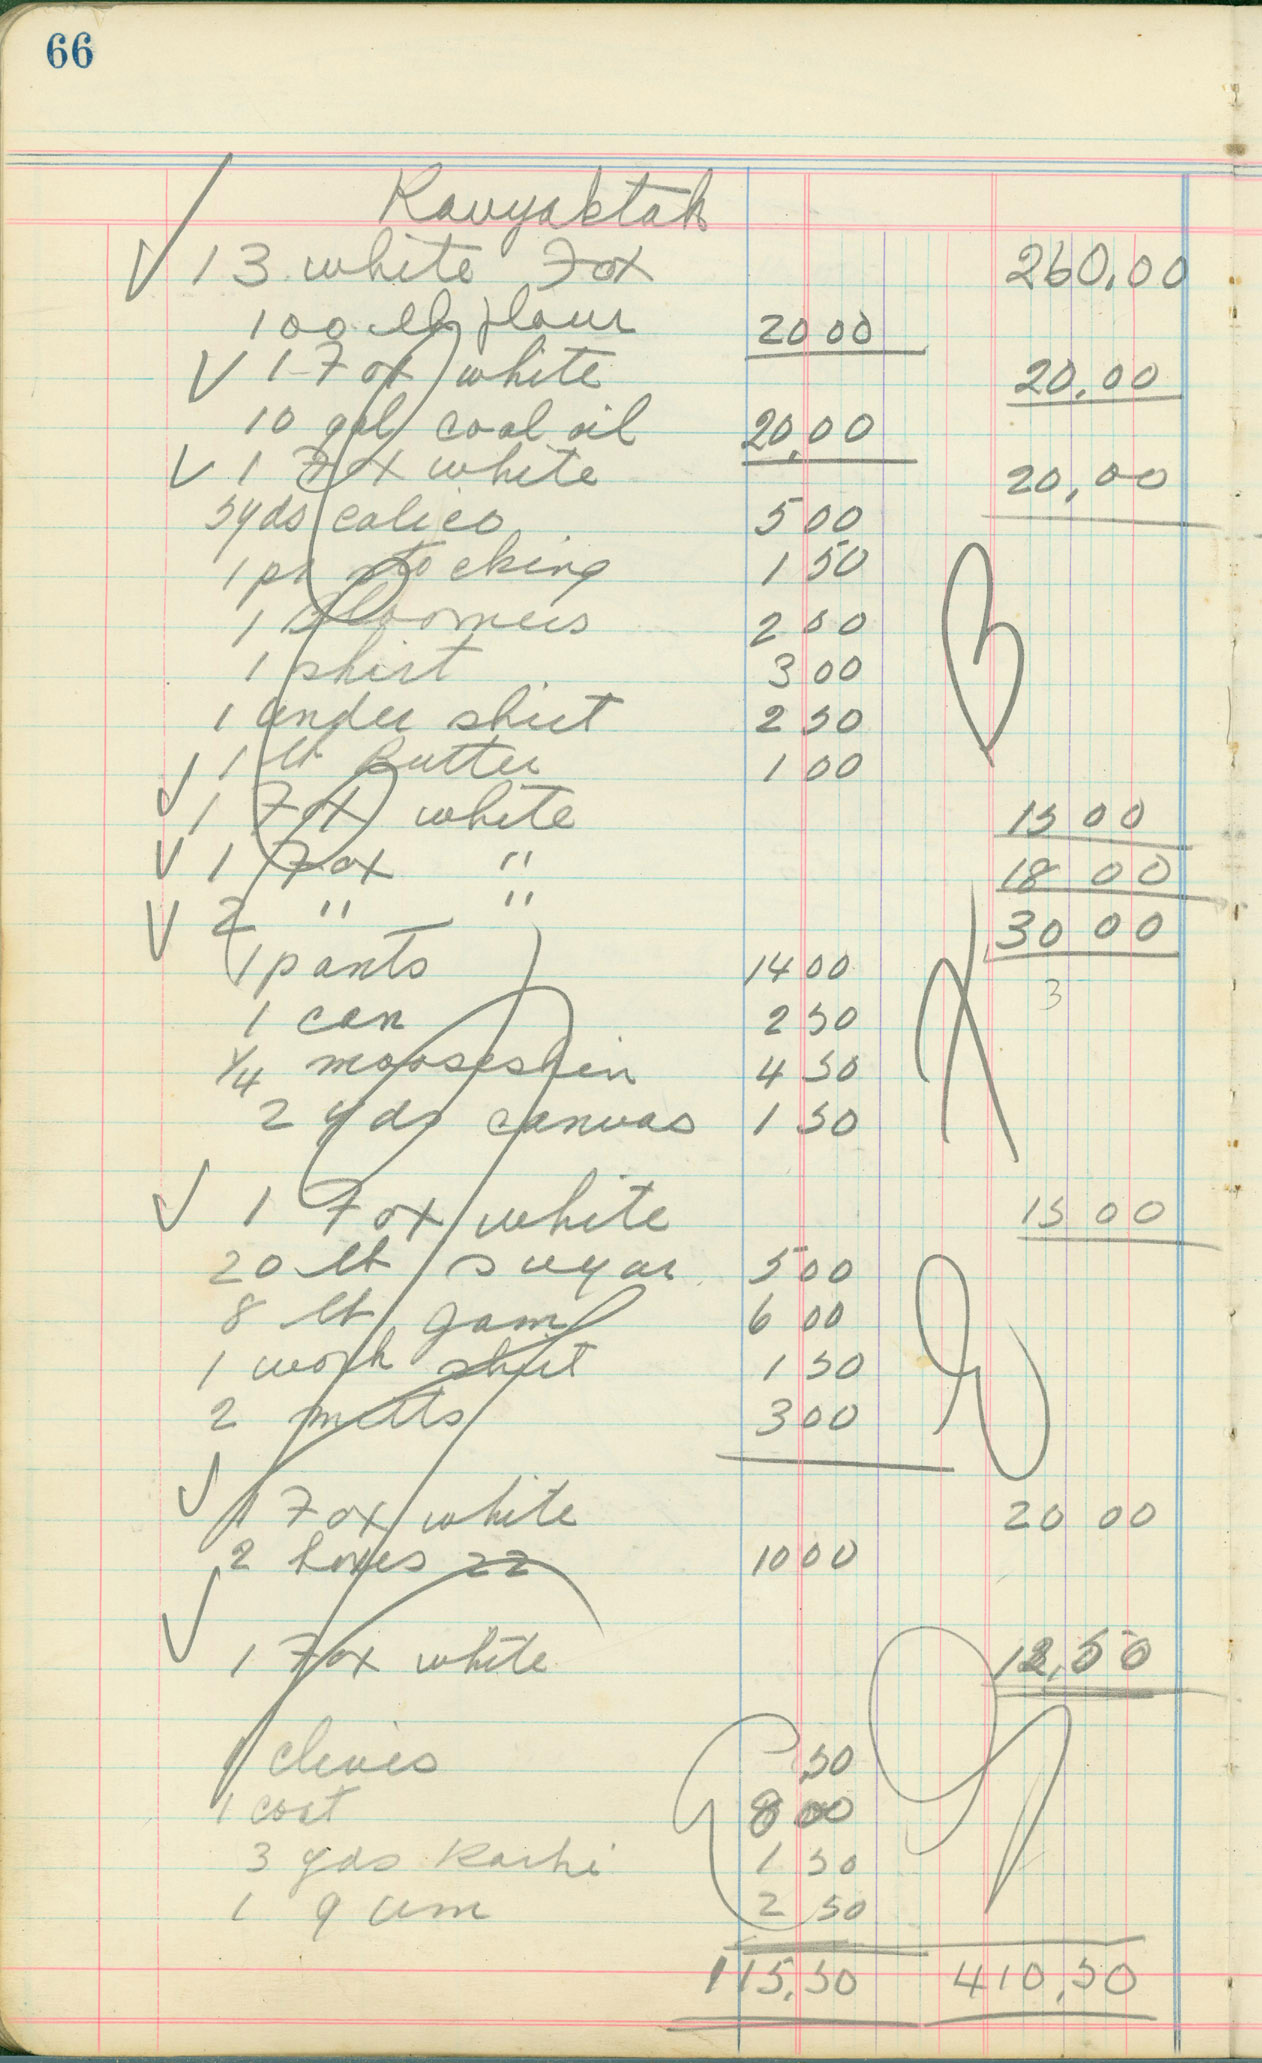 66
Kavyaktak
✓ 13 white Fox 260.00
100 lb flour 20 00
✓ 1 Fox white 20.00
10 gal coal oil 20.00
✓ 1 Fox white 20.00
5 yds calico 5 00
1 pr stocking 1 50
1 Bloomers 2 00
1 shirt 3 00
1 under shirt 2 50
1 lb Butter 1 00
✓ 1 Fox white 15 00
✓ 1 Fox " 18 00
✓ 2 " " 30 00
1 pants 14 00
3
1 can 2 50
1/4 mooseskin 4 50
2 yds canvas 1 50
✓ 1 Fox white 15 00
20 lb sugar 5 00
8 lb jam 6 00
1 work shirt 1 50
2 mitts 3 00
✓ 1 Fox white 20 00
2 boxes 22 10 00
✓ 1 Fox white 12.50
1 clevis .50
1 coat 8 00
3 yds Kachi 1 50
1 gum 2 50
115.50 410.50